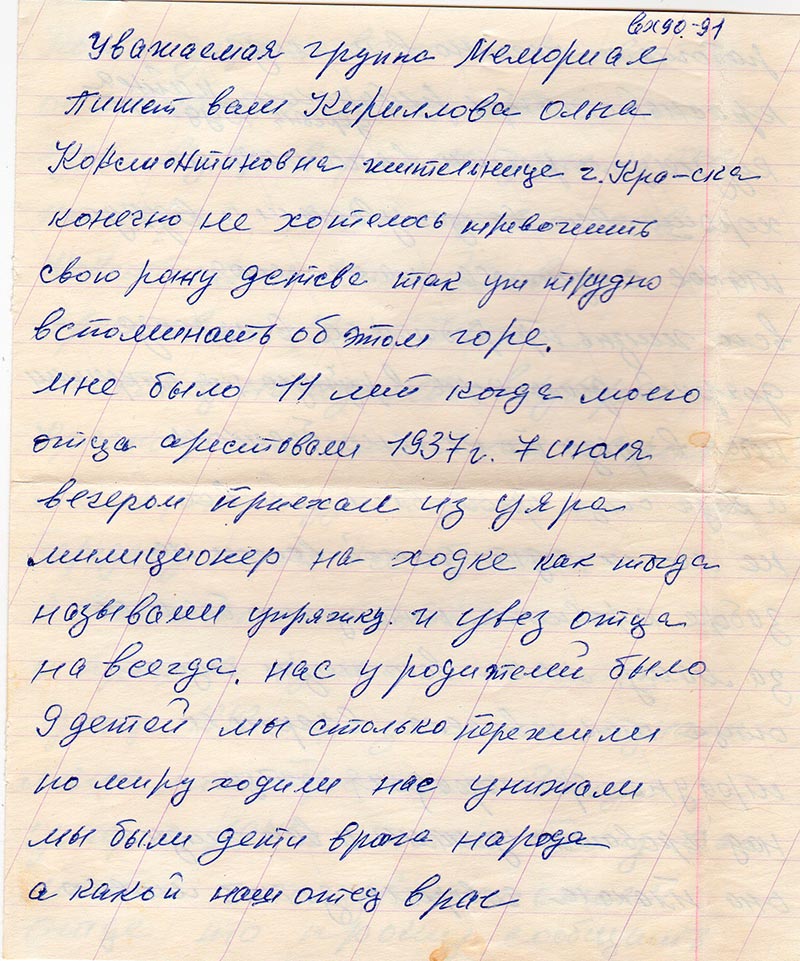 вх90-91
Уважаемая группа Мемориал
Пишет вам Кириллова Ольга
Константиновна жительнице г. Кра-ска
конечно не хотелось тревожить
свою рану детсва так уж трудно
вспоминать об этом горе.
мне было 11 лет когда моего
отца арестовали 1937г. 7 июля
вечером приехал из уяра
милиционер на ходке как тогда
называли упряжку. и увез отца
на всегда. нас у родителей было
9 детей мы столько пережили
по миру ходили нас унижали
мы были дети врага народа
а какой наш отец враг